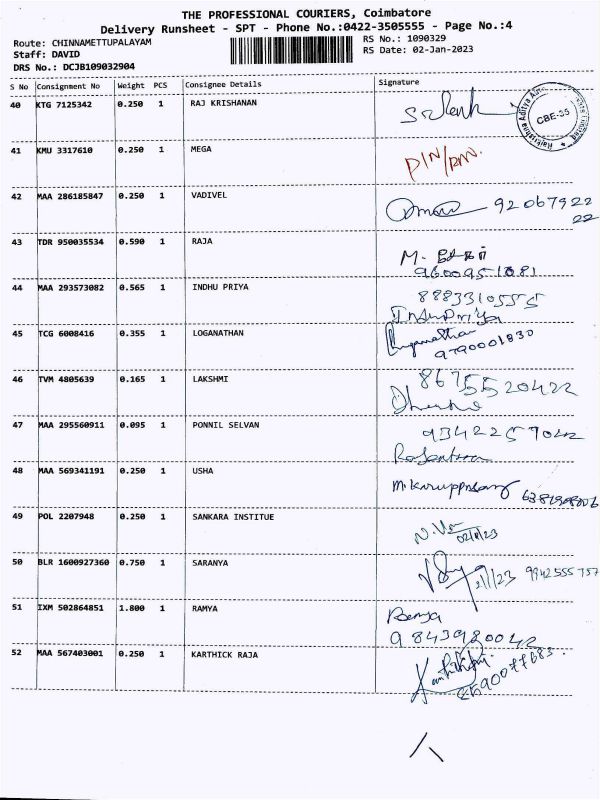 THE PROFESSIONAL COURIERS, Coimbatore
Delivery Runsheet - SPT - Phone No.:0422-3505555 - Page No.:4
Route: CHINNAMETTUPALAYAM
RS No.: 1090329
Staff: DAVID
RS Date: 02-Jan-2023
DRS No.: DCJB109032904
S No Consignment No Weight PCS Consignee Details Signature
40 KTG 7125342 0.250 1 RAJ KRISHANAN
CBE-35
41 KMU 3317610 0.250 1 MEGA
42 MAA 286185847 0.250 1 VADIVEL 92 067922
22
43 TDR 950035534 0.590 1 RAJA M.
9600951081
44 MAA 293573082 0.565 1 INDHU PRIYA 8883310555
Indhu Priya
45 TCG 6008416 0.355 1 LOGANATHAN
9790001830
46 TVM 4805639 0.165 1 LAKSHMI 8675520422
47 MAA 295560911 0.095 1 PONNIL SELVAN 9342257042
48 MAA 569341191 0.250 1 USHA
49 POL 2207948 0.250 1 SANKARA INSTITUE
50 BLR 1600927360 0.750 1 SARANYA 9942555757
51 IXM 502864851 1.800 1 RAMYA Ramya
9843920042
52 MAA 567403001 0.250 1 KARTHICK RAJA